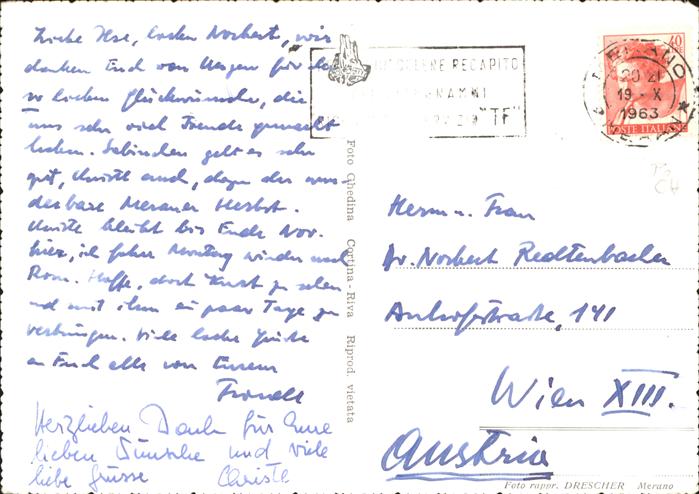 Liebe Ilse, lieber Norbert, wir
danken Euch von Herzen für die
so lieben Glückwünsche, die
uns sehr viel Freude gemacht
haben. Sabinchen geht es sehr
gut, Christl auch, dazu der wun-
derbare Meraner Herbst.
Christl bleibt bis Ende Nov.
hier, ich fahre Montag wieder nach
Rom. Hoffe, dort Kurt zu sehen
und mit ihm ein paar Tage zu
verbringen. Viele liebe Grüße
an Euch alle von Eurem
Herzlichen Dank für Eure
lieben Wünsche und viele
liebe Grüsse Christl
Foto Ghedina Cortina - Riva Riprod. vietata
RECAPITO
"TF"
MERANO
20 21
19 - X
1963
40
POSTE ITALIANE
Herrn u. Frau
Dr. Norbert Redtenbacher
Anhofstrasse, 141
Wien XIII.
Austria
Foto rappr. DRESCHER Merano